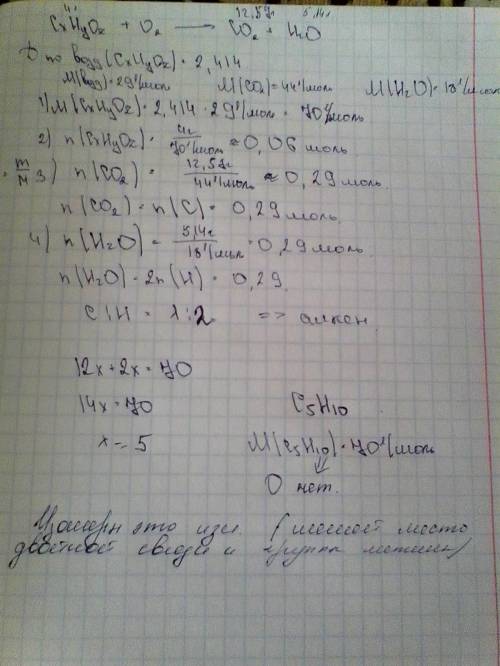 4г 12,57г 5,14г
CxHyOz + O₂ → CO₂ + H₂O
D по возд (CxHyOz) = 2,414
M(возд) = 29г/моль M(CO₂) = 44г/моль M(H₂O) = 18г/моль
1) M(CxHyOz) = 2,414 · 29г/моль = 70г/моль
2) n(CxHyOz) = 4г / 70г/моль ≈ 0,06 моль
= m/M 3) n(CO₂) = 12,57г / 44г/моль ≈ 0,29 моль
n(CO₂) = n(C) = 0,29 моль
4) n(H₂O) = 5,14г / 18г/моль = 0,29 моль
n(H₂O) = 2n(H) = 0,29
C : H = 1 : 2 => алкен
12x + 2x = 70
14x = 70 C₅H₁₀
x = 5 M(C₅H₁₀) = 70г/моль
⇓
O нет.
Изомеры это изм. ( место
двойной связи и группа метильн)